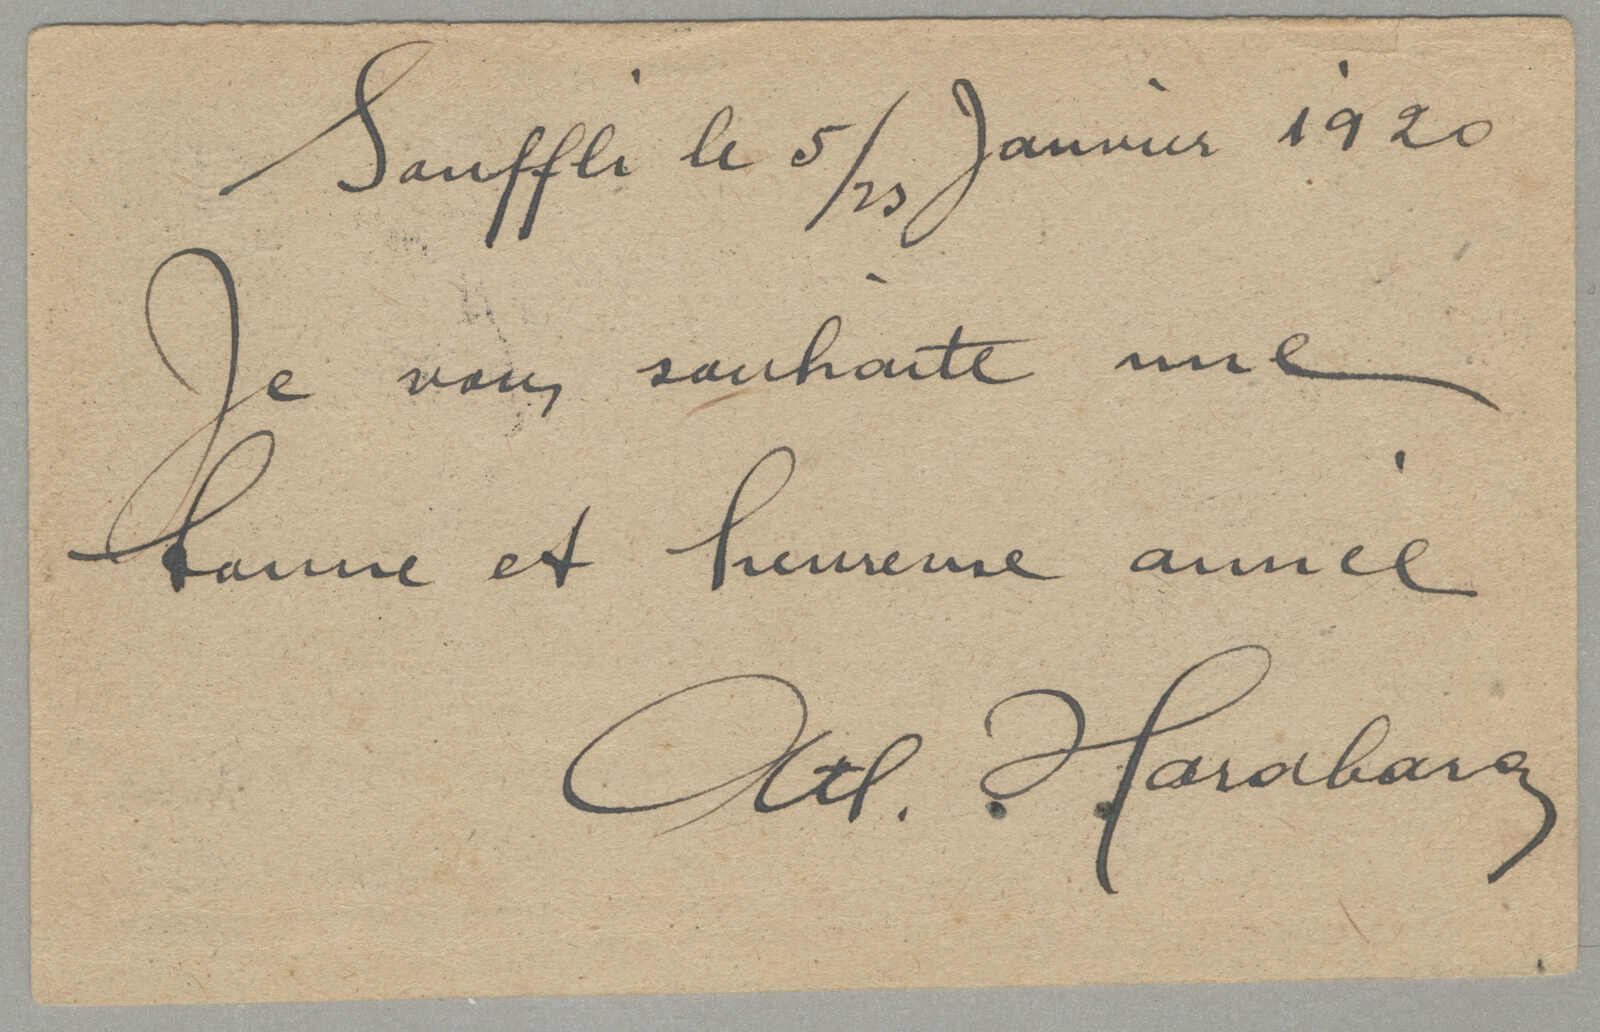 Souffli le 5/23 Janvier 1920
Je vous souhaite une
bonne et heureuse année
Ath.